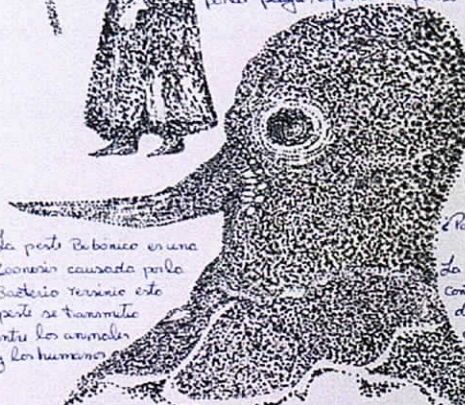 La peste Bubónica es una
zoonosis causada por la
Bacteria Yersinia esta
peste se transmitio
entre los animales
y los humanos
La